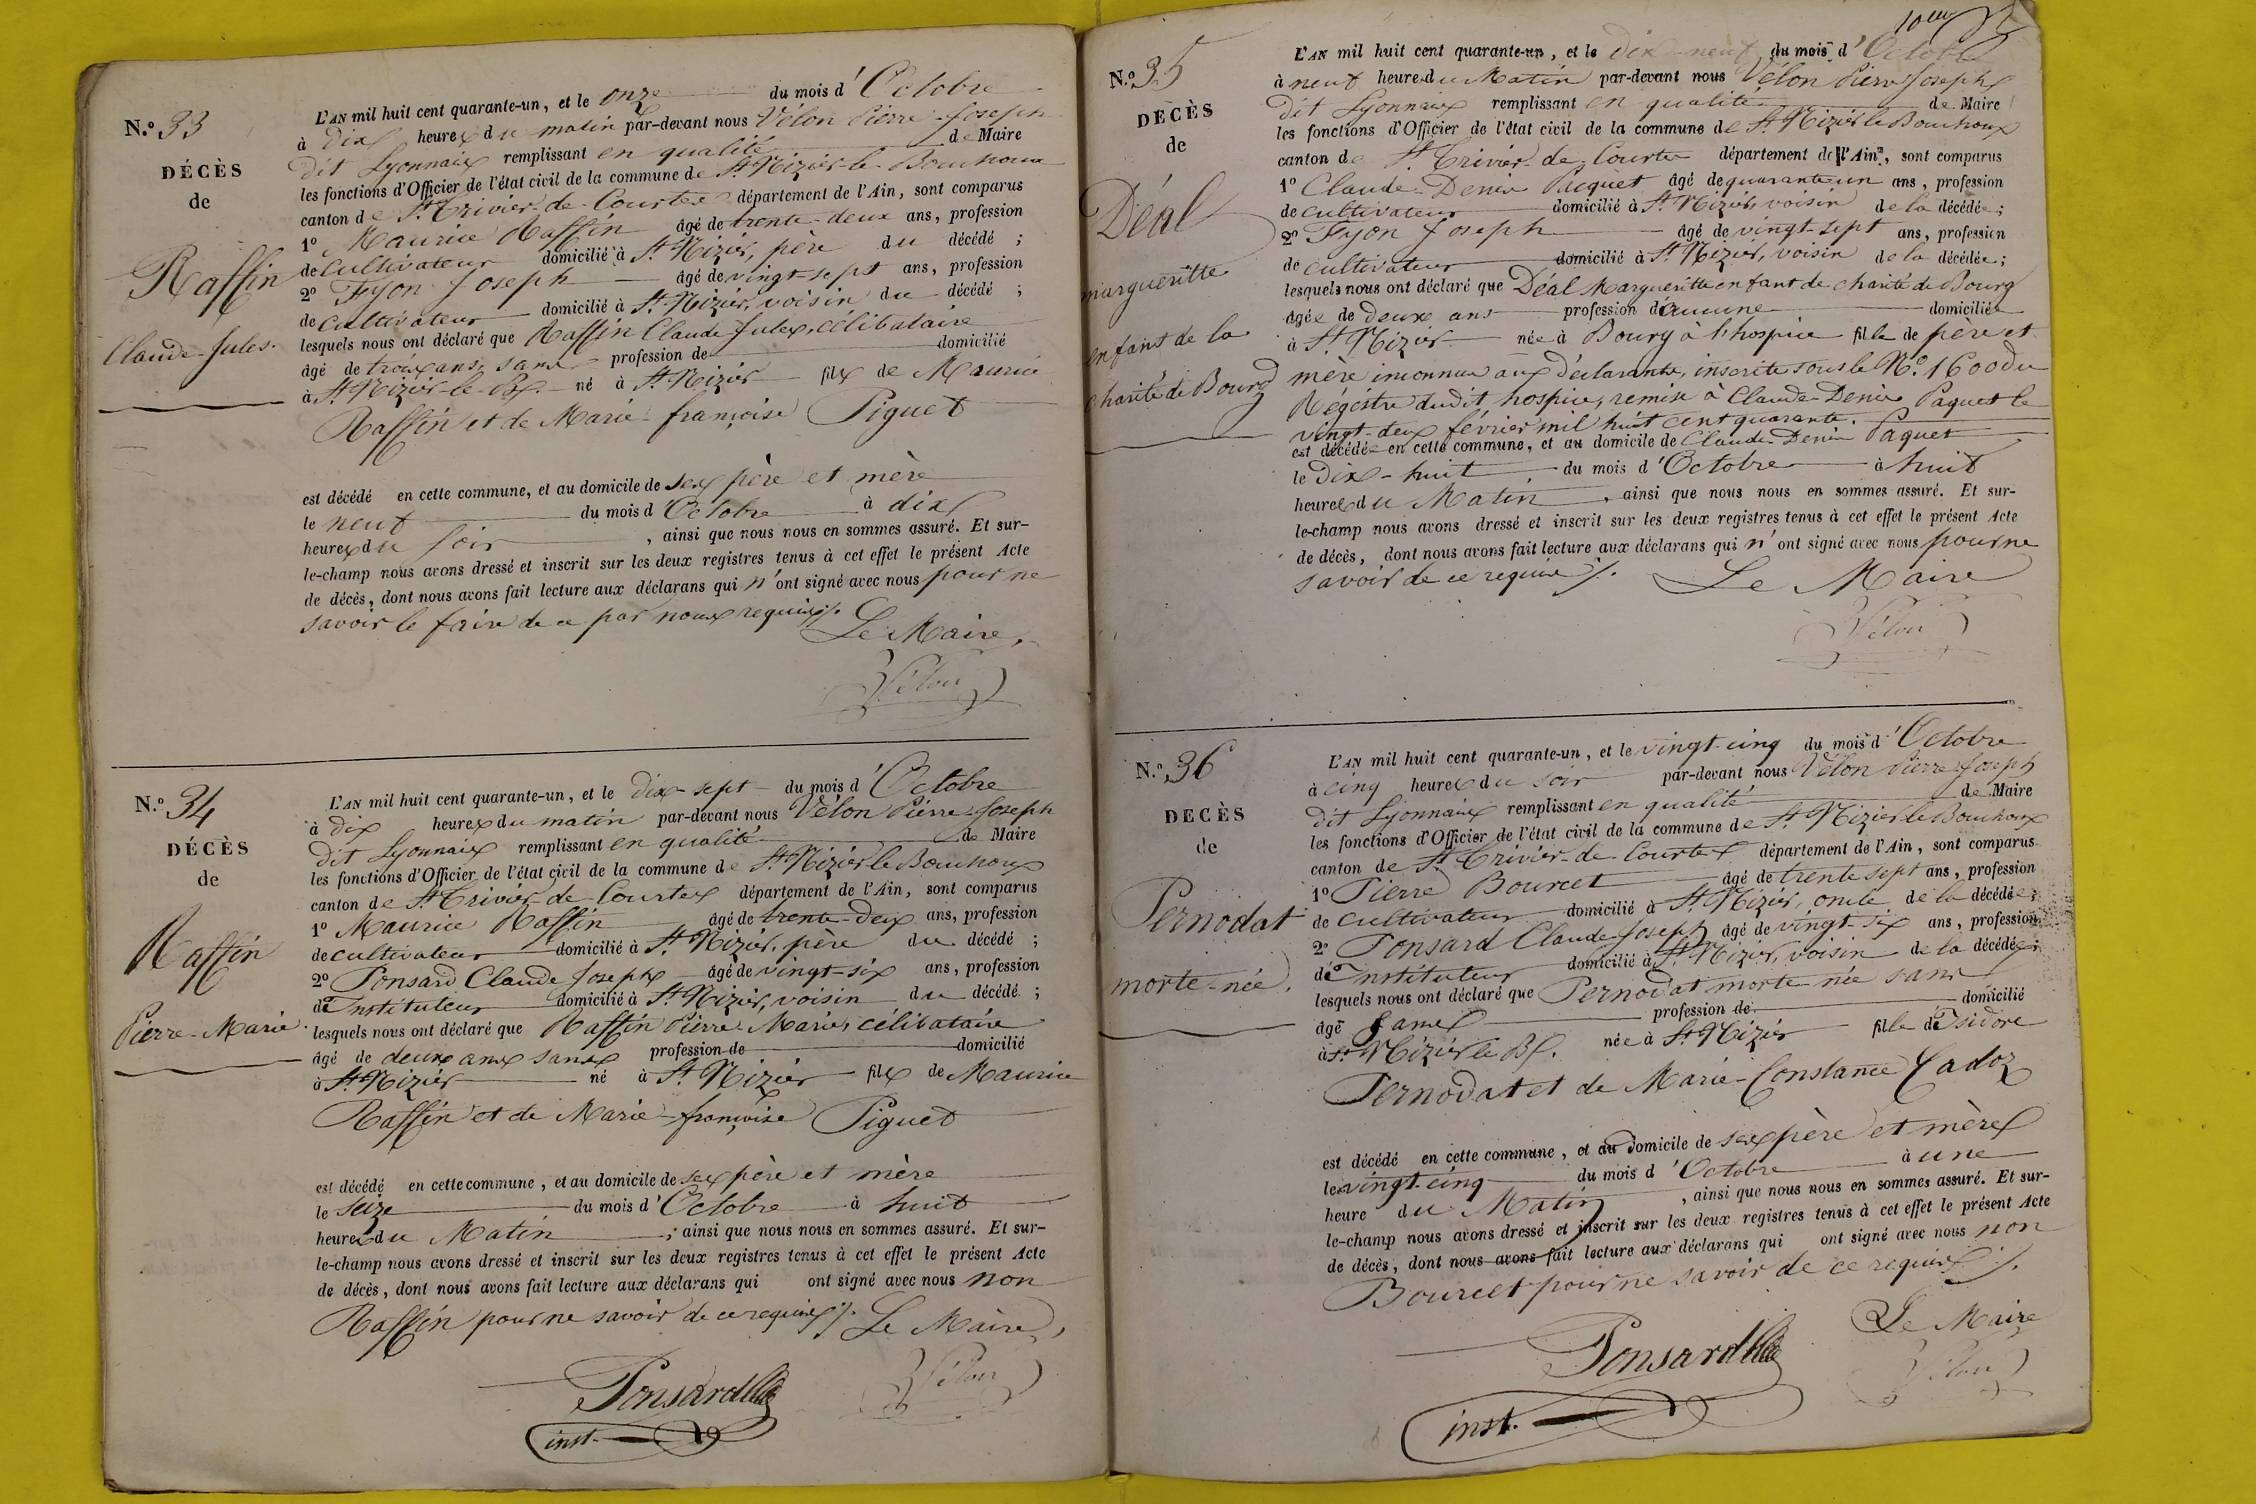 N.o 33
DÉCÈS
de
Raffin
Claude-Jules.
L'AN mil huit cent quarante-un, et le onze du mois d'Octobre
à dix heures du matin par-devant nous Vélon Pierre-Joseph
dit Lyonnais remplissant en qualité de Maire
les fonctions d'Officier de l'état civil de la commune de St Nizier-le-Bouchoux
canton de St Trivier-de-Courtes département de l'Ain, sont comparus
1o Maurice Raffin âgé de trente-deux ans, profession
de cultivateur domicilié à St Nizier, père du décédé ;
2o Fyon Joseph âgé de vingt-sept ans, profession
de cultivateur domicilié à St Nizier, voisin du décédé ;
lesquels nous ont déclaré que Raffin Claude Jules, célibataire
âgé de trois ans, sans profession de domicilié
à St Nizier-le-Bx. né à St Nizier fils de Maurice
Raffin et de Marie-françoise Piguet
est décédé en cette commune, et au domicile de ses père et mère
le neuf du mois d'Octobre à dix
heures du soir, ainsi que nous nous en sommes assuré. Et sur-
le-champ nous avons dressé et inscrit sur les deux registres tenus à cet effet le présent Acte
de décès, dont nous avons fait lecture aux déclarans qui n'ont signé avec nous pour ne
savoir le faire de ce par nous requis ./.
Le Maire,
Vélon
N.o 34
DÉCÈS
de
Raffin
Pierre-Marie.
L'AN mil huit cent quarante-un, et le dix-sept du mois d'Octobre
à dix heures du matin par-devant nous Vélon Pierre-Joseph
dit Lyonnais remplissant en qualité de Maire
les fonctions d'Officier de l'état civil de la commune de St Nizier le Bouchoux
canton de St Trivier-de-Courtes département de l'Ain, sont comparus
1o Maurice Raffin âgé de trente-deux ans, profession
de cultivateur domicilié à St Nizier, père du décédé ;
2o Ponsard Claude Joseph âgé de vingt-six ans, profession
d'Instituteur domicilié à St Nizier, voisin du décédé ;
lesquels nous ont déclaré que Raffin Pierre-Marie, célibataire
âgé de deux ans sans profession de domicilié
à St Nizier né à St Nizier fils de Maurice
Raffin et de Marie-françoise Piguet
est décédé en cette commune, et au domicile de ses père et mère
le seize du mois d'Octobre à huit
heures du Matin ; ainsi que nous nous en sommes assuré. Et sur-
le-champ nous avons dressé et inscrit sur les deux registres tenus à cet effet le présent Acte
de décès, dont nous avons fait lecture aux déclarans qui ont signé avec nous non
Raffin pour ne savoir de ce requis ./. Le Maire,
Ponsard Vélon
inst.
10eme
N.o 35
DÉCÈS
de
Déal
margueritte
enfant de la
charité de Bourg
L'AN mil huit cent quarante-un, et le Dix-neuf du mois d'Octobre
à neuf heures du Matin par-devant nous Vélon Pierre-Joseph
dit Lyonnais remplissant en qualité de Maire
les fonctions d'Officier de l'état civil de la commune de St Nizier le Bouchoux
canton de St Trivier-de-Courtes département de l'Ain, sont comparus
1o Claude-Denis Pacquet âgé de quarante un ans, profession
de cultivateur domicilié à St Nizier, voisin de la décédée ;
2o Fyon Joseph âgé de vingt-sept ans, profession
de cultivateur domicilié à St Nizier, voisin de la décédée ;
lesquels nous ont déclaré que Déal Margueritte enfant de charité de Bourg
âgée de deux ans profession d'aucune domiciliée
à St Nizier née à Bourg à l'hospice fille de père et
mère inconnus aux déclarants, inscrite sous le No. 1600 du
Régistre dudit hospice, remise à Claude-Denis Paquet le
vingt-deux février mil huit cent quarante.
est décédée en cette commune, et au domicile de Claude-Denis Paquet
le Dix-huit du mois d'Octobre à huit
heures du Matin, ainsi que nous nous en sommes assuré. Et sur-
le-champ nous avons dressé et inscrit sur les deux registres tenus à cet effet le présent Acte
de décès, dont nous avons fait lecture aux déclarans qui n'ont signé avec nous pour ne
savoir de ce requis ./. Le Maire
Vélon
N.o 36
DÉCÈS
de
Pernodat
morte-née.
L'AN mil huit cent quarante-un, et le vingt-cinq du mois d'Octobre
à cinq heures du soir par-devant nous Vélon Pierre-Joseph
dit Lyonnais remplissant en qualité de Maire
les fonctions d'Officier de l'état civil de la commune de St Nizier le Bouchoux
canton de St Trivier-de-Courtes département de l'Ain, sont comparus
1o Pierre Bourcet âgé de trente sept ans, profession
de cultivateur domicilié à St Nizier, oncle de la décédée ;
2o Ponsard Claude-Joseph âgé de vingt-six ans, profession
d'Instituteur domicilié à St Nizier, voisin de la décédée ;
lesquels nous ont déclaré que Pernodat morte-née sans
âge sans profession de domicilié
à St Nizier le Bx. née à St Nizier fille d'Isidore
Pernodat et de Marie-Constance Cadoz
est décédé en cette commune, et au domicile de ses père et mère
le vingt-cinq du mois d'Octobre à une
heure du Matin, ainsi que nous nous en sommes assuré. Et sur-
le-champ nous avons dressé et inscrit sur les deux registres tenus à cet effet le présent Acte
de décès, dont nous avons fait lecture aux déclarans qui ont signé avec nous non
Bourcet pour ne savoir de ce requis ./.
Le Maire
Ponsard Vélon
inst.